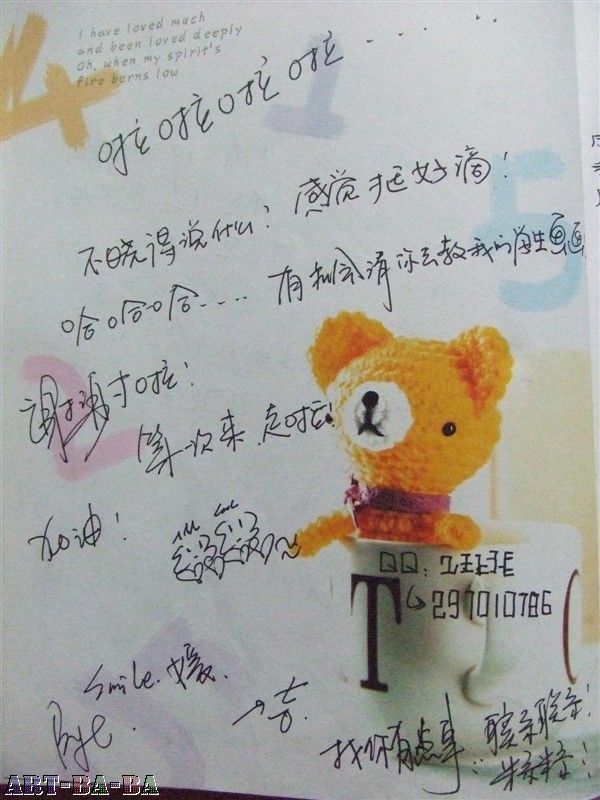 I have loved much
and been loved deeply
Oh, when my spirit's
fire burns low
啦啦啦啦......
不晓得说什么?感觉挺好滴!
哈哈哈....有机会请你去教我的学生画画
谢谢啦!
第一次来,走啦!
加油!
QQ:
297010786
Smile.
Bye.
找你有点事..联系联系!
ART-BA-BA